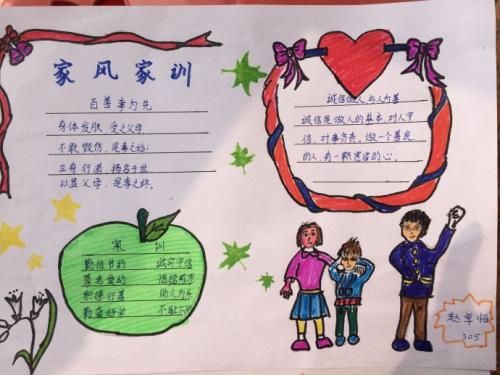 家风家训
百善孝为先
身体发肤，受之父母
不敢毁伤，是孝之始；
立身行道，扬名于世
以显父母，是孝之终。
诚信做人 与人为善
诚信是做人的基本，对人守
信，对事负责。做一个善良
的人，有一颗宽容的心。
家训
勤俭节约 诚实守信
尊老爱幼
积德行善 助人为乐
勤奋好学 不耻下问
305